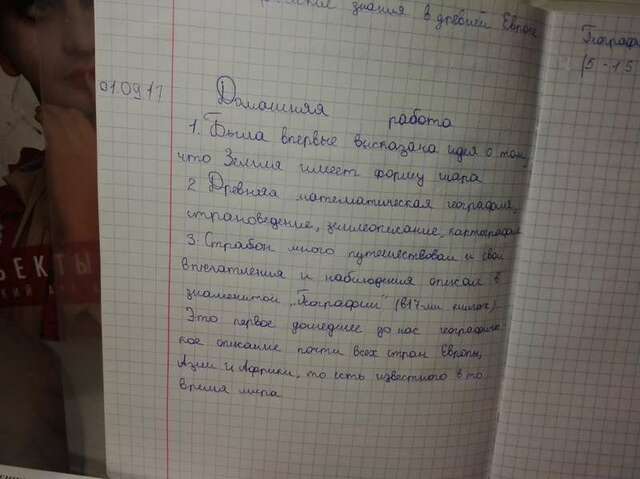 знания в древней Европе
Географ
(5-15)
01.09.17
Домашняя работа
1. Была впервые высказана идея о том,
что Земля имеет форму шара
2 Древняя математическая география,
страноведение, землеописание, картография
3. Страбон много путешествовал и свои
впечатления и наблюдения описал в
знаменитой „Географии" (в17-ти книгах)
Это первое дошедшее до нас географичес
кое описание почти всех стран Европы,
Азии и Африки, то есть известного в то
время мира
ЕКТЫ